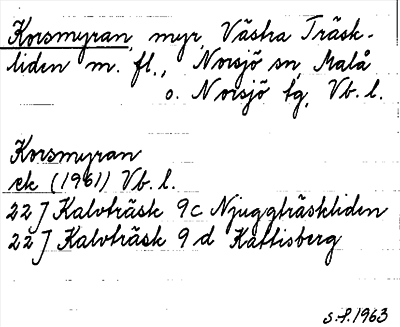 Korsmyran, myr, Västra Träsk-
liden m. fl., Norsjö sn, Malå
o. Norsjö tg, Vb. l.
Korsmyran
ek (1961) Vb. l.
22 J Kalvträsk 9 c Njuggträskliden
22 J Kalvträsk 9 d Kattisberg
S. f. 1963